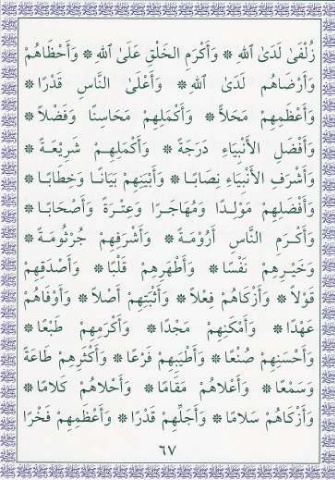 زُلْفَىٰ لَدَى اللهِ * وَأَكْرَمِ الخَلْقِ عَلَى اللهِ * وَأَحْظَاهُمْ
وَأَرْضَاهُم لَدَى اللهِ * وَأَعْلَى النَّاسِ قَدْرًا *
وَأَعْظَمِهِمْ مَحَلاًّ * وَأَكْمَلِهِمْ مَحَاسِنًا وَفَضْلاً *
وَأَفْضَلِ الأَنْبِيَاءِ دَرَجَةً * وَأَكْمَلِهِمْ شَرِيعَةً *
وَأَشْرَفِ الأَنْبِيَاءِ نِصَابًا * وَأَبْيَنِهِمْ بَيَانًا وَخِطَابًا *
وَأَفْضَلِهِمْ مَوْلِدًا وَمُهَاجَرًا وَعِتْرَةً وَأَصْحَابًا *
وَأَكْرَمِ النَّاسِ أَرُومَةً * وَأَشْرَفِهِمْ جُرْثُومَةً *
وَخَيْرِهِمْ نَفْسًا * وَأَطْهَرِهِمْ قَلْبًا * وَأَصْدَقِهِمْ
قَوْلاً * وَأَزْكَاهُمْ فِعْلاً * وَأَثْبَتِهِمْ أَصْلاً * وَأَوْفَاهُمْ
عَهْدًا * وَأَمْكَنِهِمْ مَجْدًا * وَأَكْرَمِهِمْ طَبْعًا *
وَأَحْسَنِهِمْ صُنْعًا * وَأَطْيَبِهِمْ فَرْعًا * وَأَكْثَرِهِمْ طَاعَةً
وَسَمْعًا * وَأَعْلاهُمْ مَقَامًا * وَأَحْلاهُمْ كَلامًا *
وَأَزْكَاهُمْ سَلامًا * وَأَجَلِّهِمْ قَدْرًا * وَأَعْظَمِهِمْ فَخْرًا
٦٧